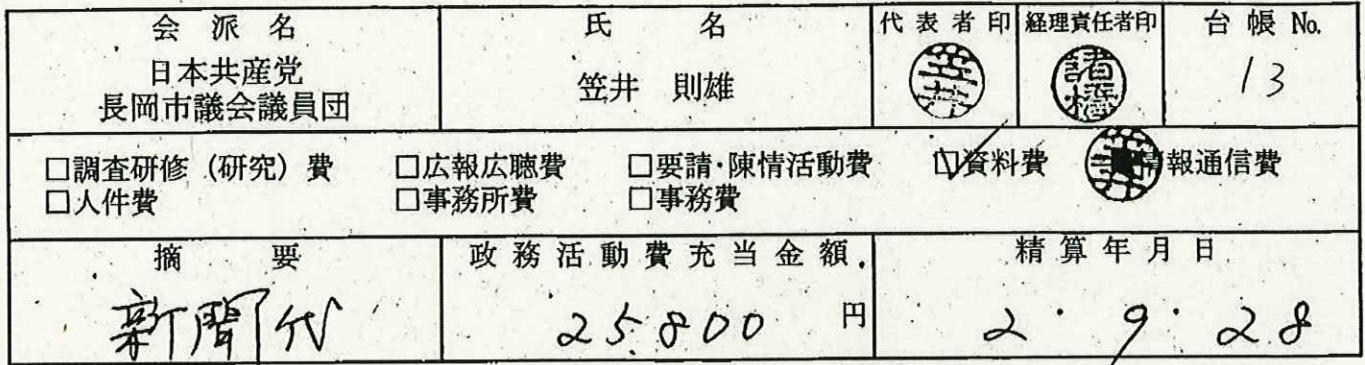 会派名 氏名 代表者印 経理責任者印 台帳No.
日本共産党
長岡市議会議員団 笠井 則雄 笠井 諸橋 13
□調査研修(研究)費 □広報広聴費 □要請・陳情活動費 ☑資料費 情報通信費
□人件費 □事務所費 □事務費
摘要 政務活動費充当金額 精算年月日
新聞代 25,800円 2・9・28